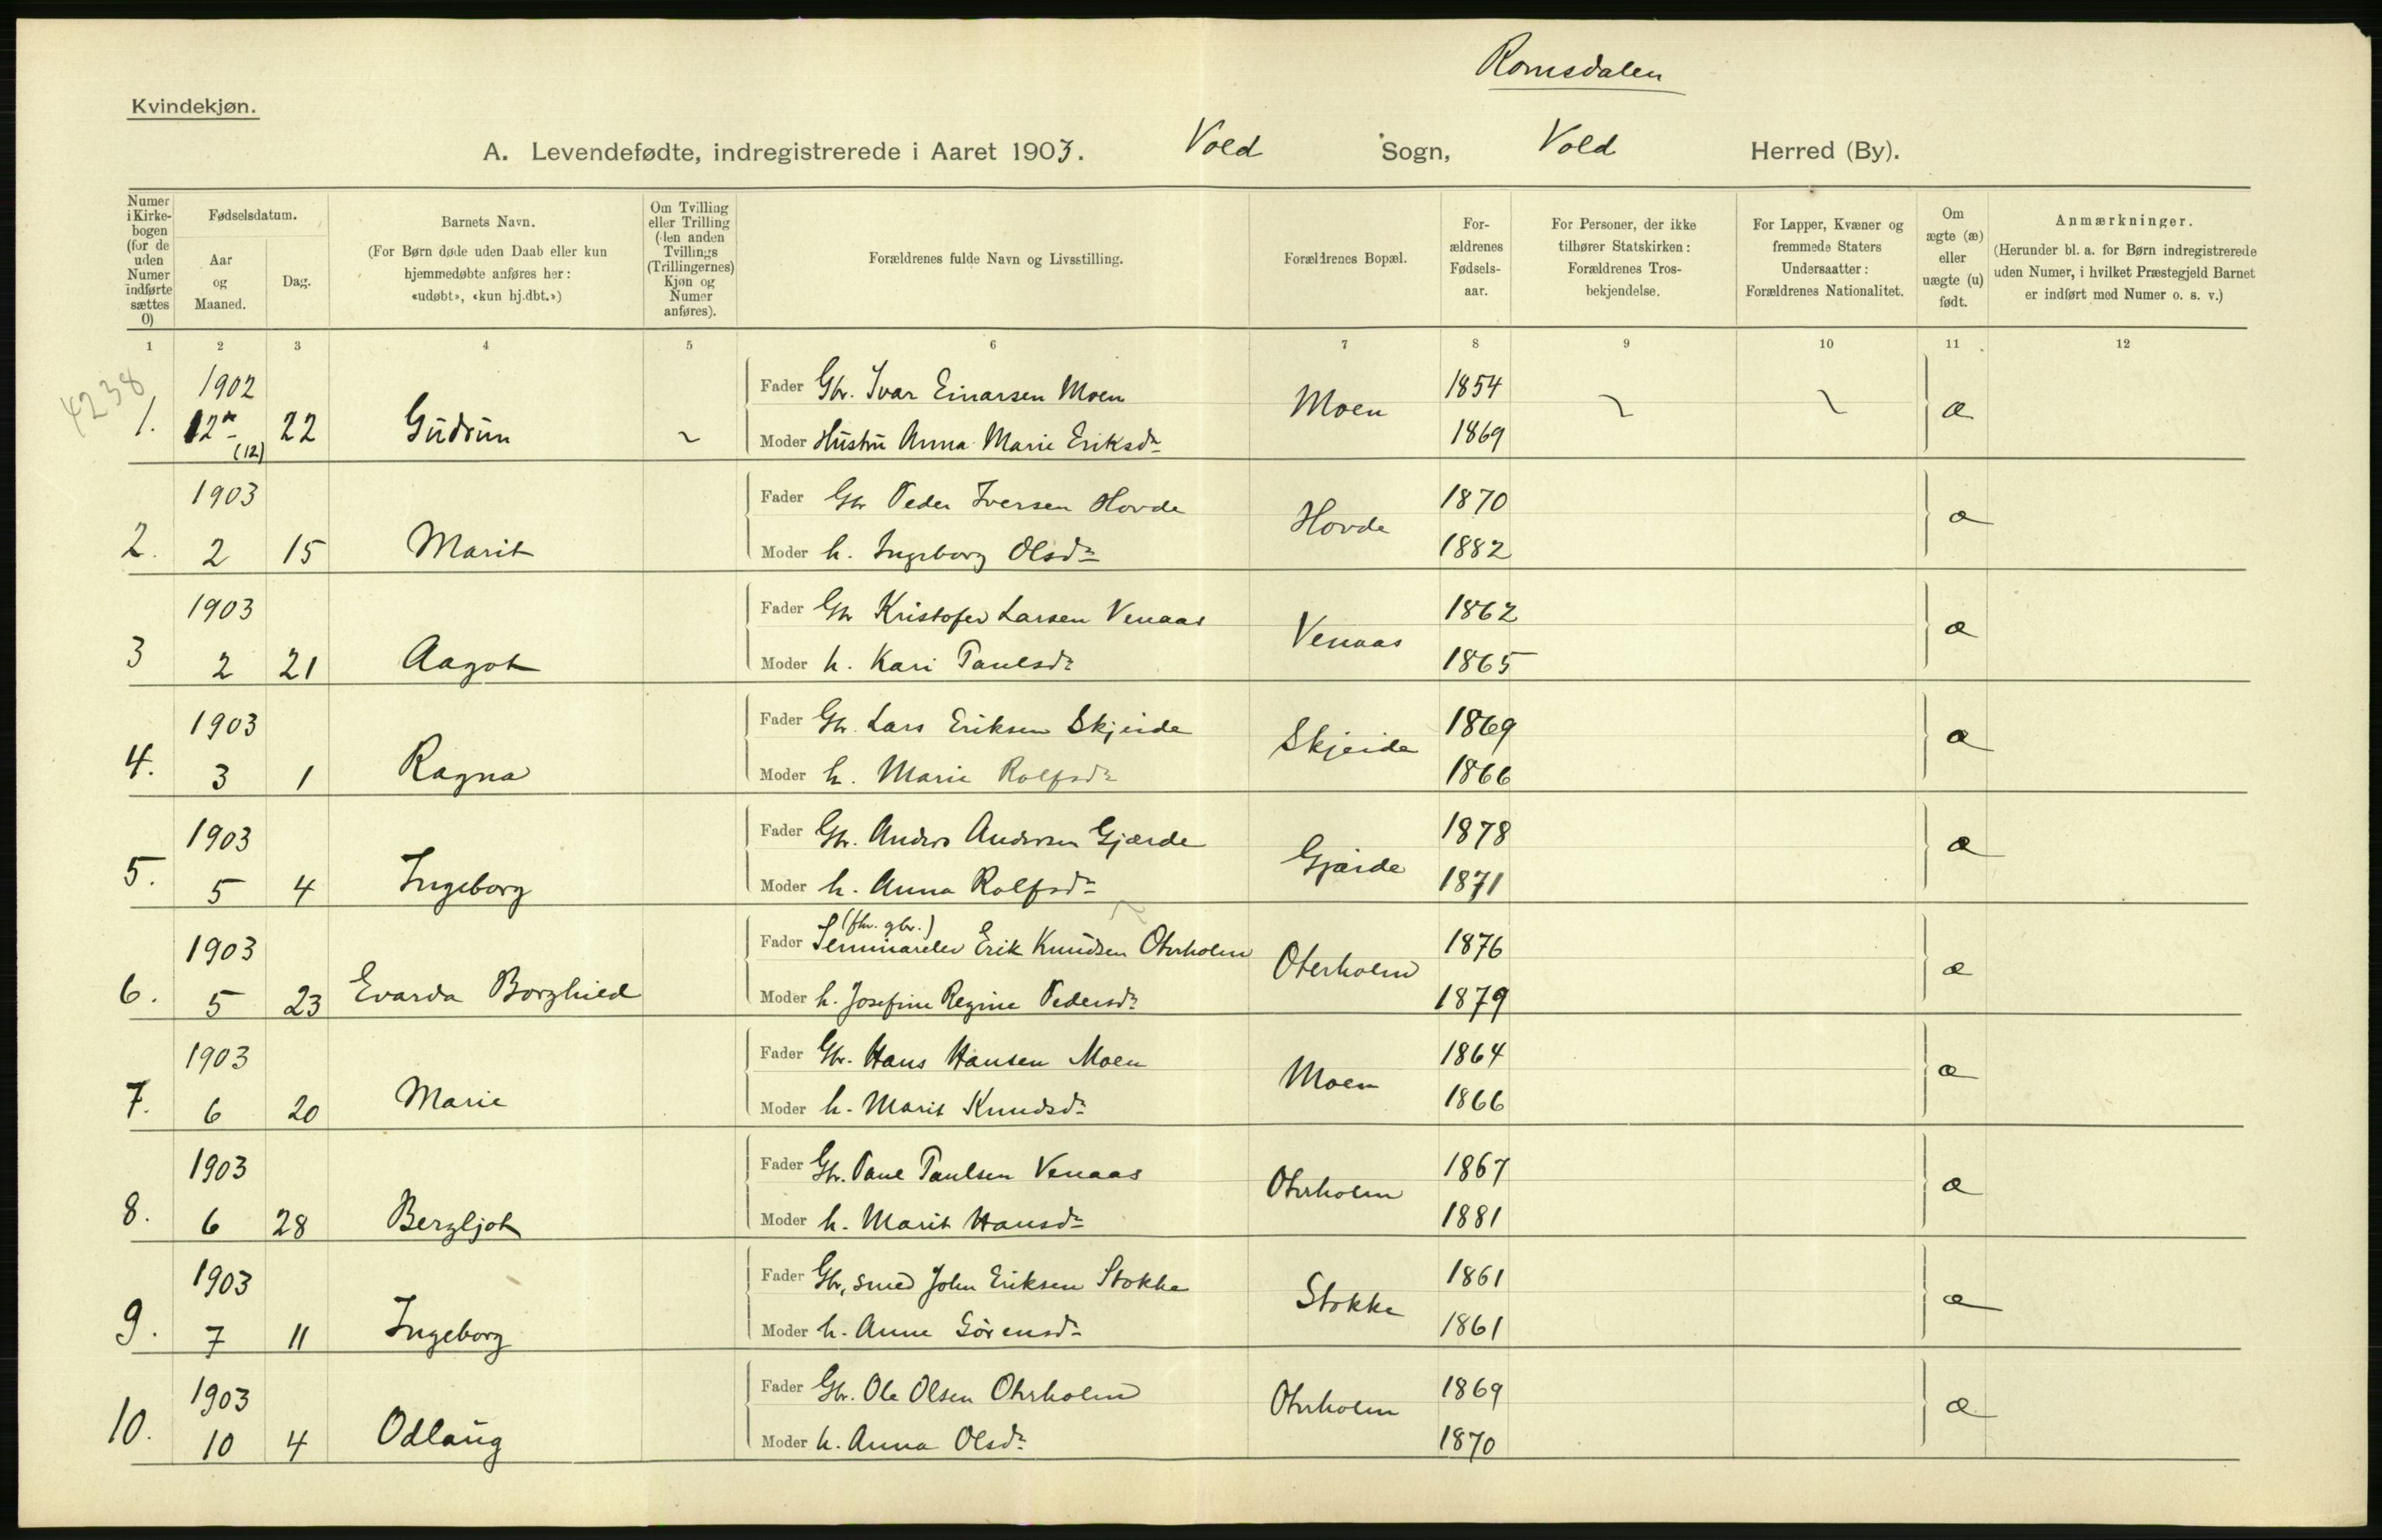 Romsdalen
Kvindekjøn.
A. Levendefødte, indregistrerede i Aaret 1903. Vold Sogn, Vold Herred (By).
Numer i Kirke-bogen (for de uden Numer indførte sættes 0)
Fødselsdatum.
Aar og Maaned.
Dag.
Barnets Navn.
(For Børn døde uden Daab eller kun hjemmedøbte anføres her: «udøbt», «kun hj.dbt.»)
Om Tvilling eller Trilling (den anden Tvillings (Trillingernes) Kjøn og Numer anføres).
Forældrenes fulde Navn og Livsstilling.
Forældrenes Bopæl.
For-ældrenes Fødsels-aar.
For Personer, der ikke tilhører Statskirken: Forældrenes Tros-bekjendelse.
For Lapper, Kvæner og fremmede Staters Undersaatter: Forældrenes Nationalitet.
Om ægte (æ) eller uægte (u) født.
Anmærkninger.
(Herunder bl. a. for Børn indregistrerede uden Numer, i hvilket Præstegjeld Barnet er indført med Numer o. s. v.)
1 2 3 4 5 6 7 8 9 10 11 12
4238
1902 Fader Gbr. Ivar Einarsen Moen Moen 1854 æ
1. 12 (12) 22 Gudrun Moder Hustru Anna Marie Eriksdr 1869
1903 Fader Gbr Peder Iversen Hovde Hovde 1870 æ
2. 2 15 Marit Moder h. Ingeborg Olsdr 1882
1903 Fader Gbr Kristofer Larsen Venaas Venaas 1862 æ
3 2 21 Aagot Moder h. Kari Paulsdr 1865
1903 Fader Gbr. Lars Eriksen Skjeide Skjeide 1869 æ
4. 3 1 Ragna Moder h. Marie Rolfsdr 1866
1903 Fader Gbr. Anders Andersen Gjærde Gjærde 1878 æ
5. 5 4 Ingeborg Moder h. Anna Rolfsdr 1871
(fhv. gbr.)
1903 Fader Seminarelev Erik Knudsen Oterholm Oterholm 1876 æ
6. 5 23 Evarda Borghild Moder h. Josefine Regine Pedersdr 1879
1903 Fader Gbr. Hans Hansen Moen Moen 1864 æ
7. 6 20 Marie Moder h. Marit Knudsdr 1866
1903 Fader Gbr. Paul Paulsen Venaas Oterholm 1867 æ
8. 6 28 Bergljot Moder h. Marit Hansdr 1881
1903 Fader Gbr, smed John Eriksen Stokke Stokke 1861 æ
9. 7 11 Ingeborg Moder h. Anne Sörensdr 1861
1903 Fader Gbr. Ole Olsen Oterholm Oterholm 1869 æ
10. 10 4 Odlaug Moder h. Anna Olsdr 1870